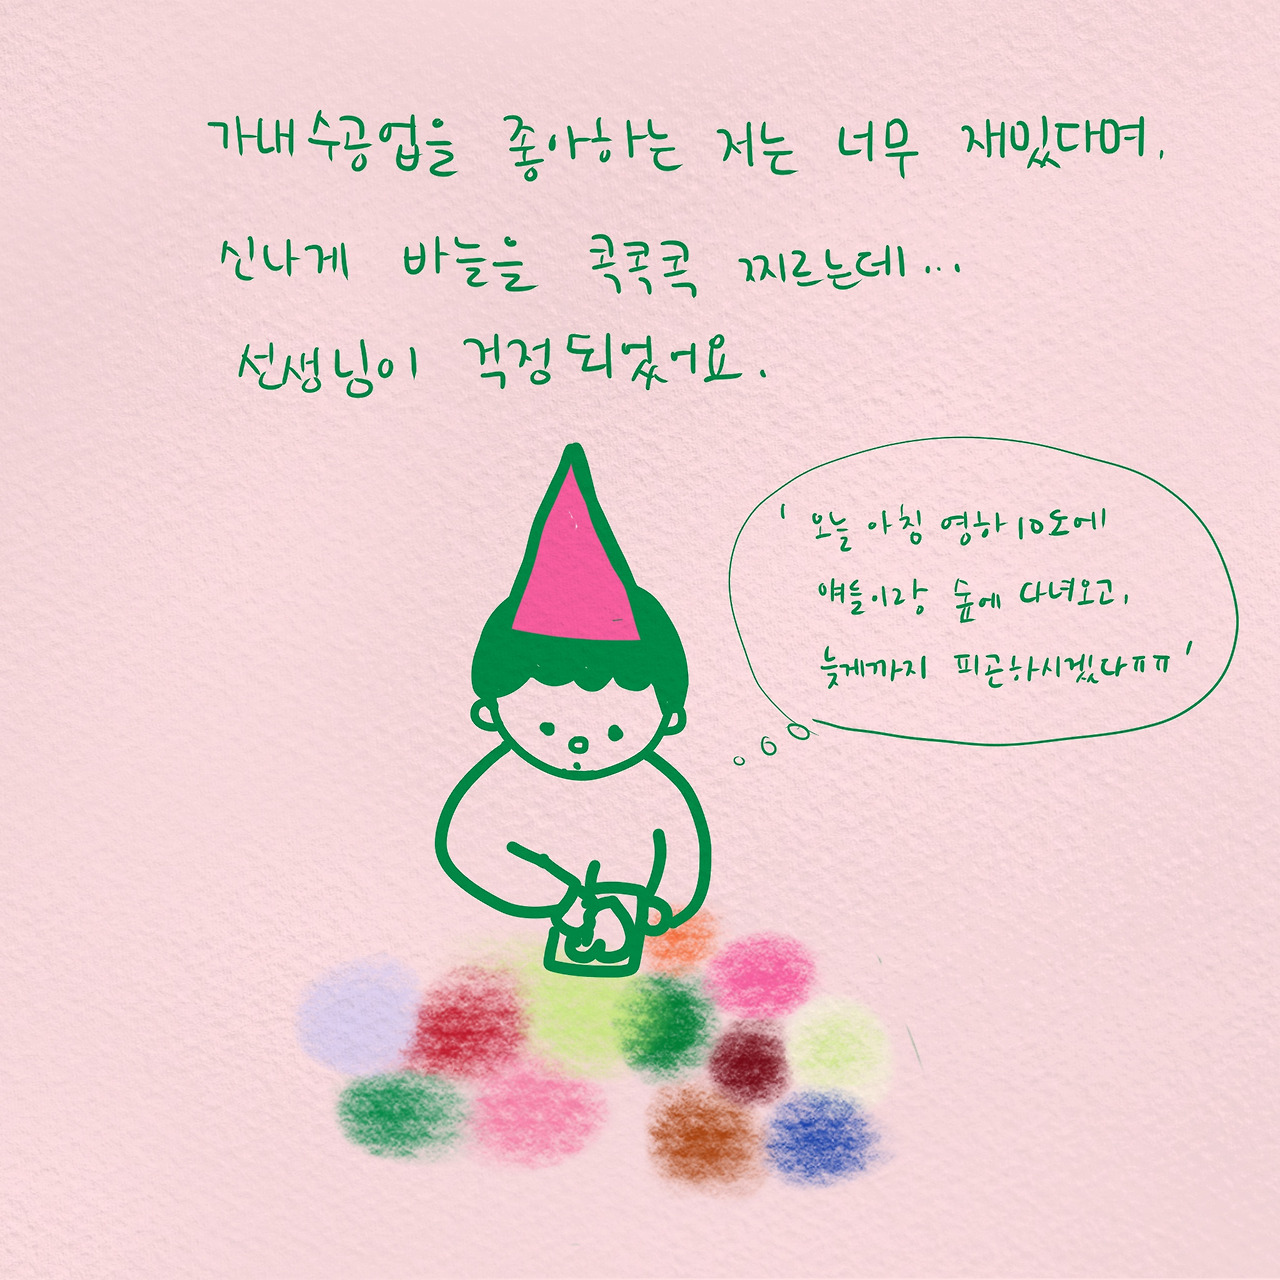 가내수공업을 좋아하는 저는 너무 재밌다며,
신나게 바늘을 콕콕콕 찌르는데...
선생님이 걱정되었어요.
'오늘 아침 영하 10도에
얘들이랑 숲에 다녀오고,
늦게까지 피곤하시겠다ㅠㅠ'